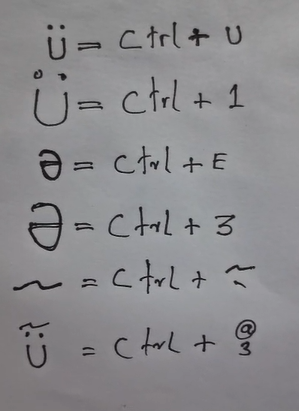 ü = Ctrl + U
Ü = Ctrl + 1
ə = Ctrl + E
Ə = Ctrl + 3
~ = Ctrl + ~
ü̃ = Ctrl + @ 3